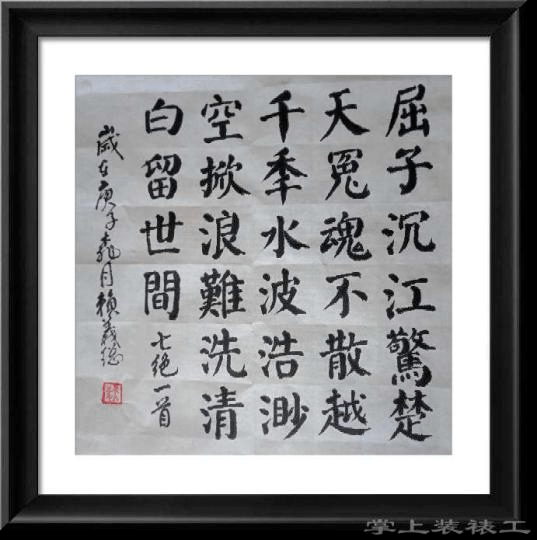 屈子沉江驚楚
天冤魂不散越
千秊水波浩渺
空掀浪難洗清
白留世間 七絶一首
歲在庚子 月賴義總
掌上装裱工